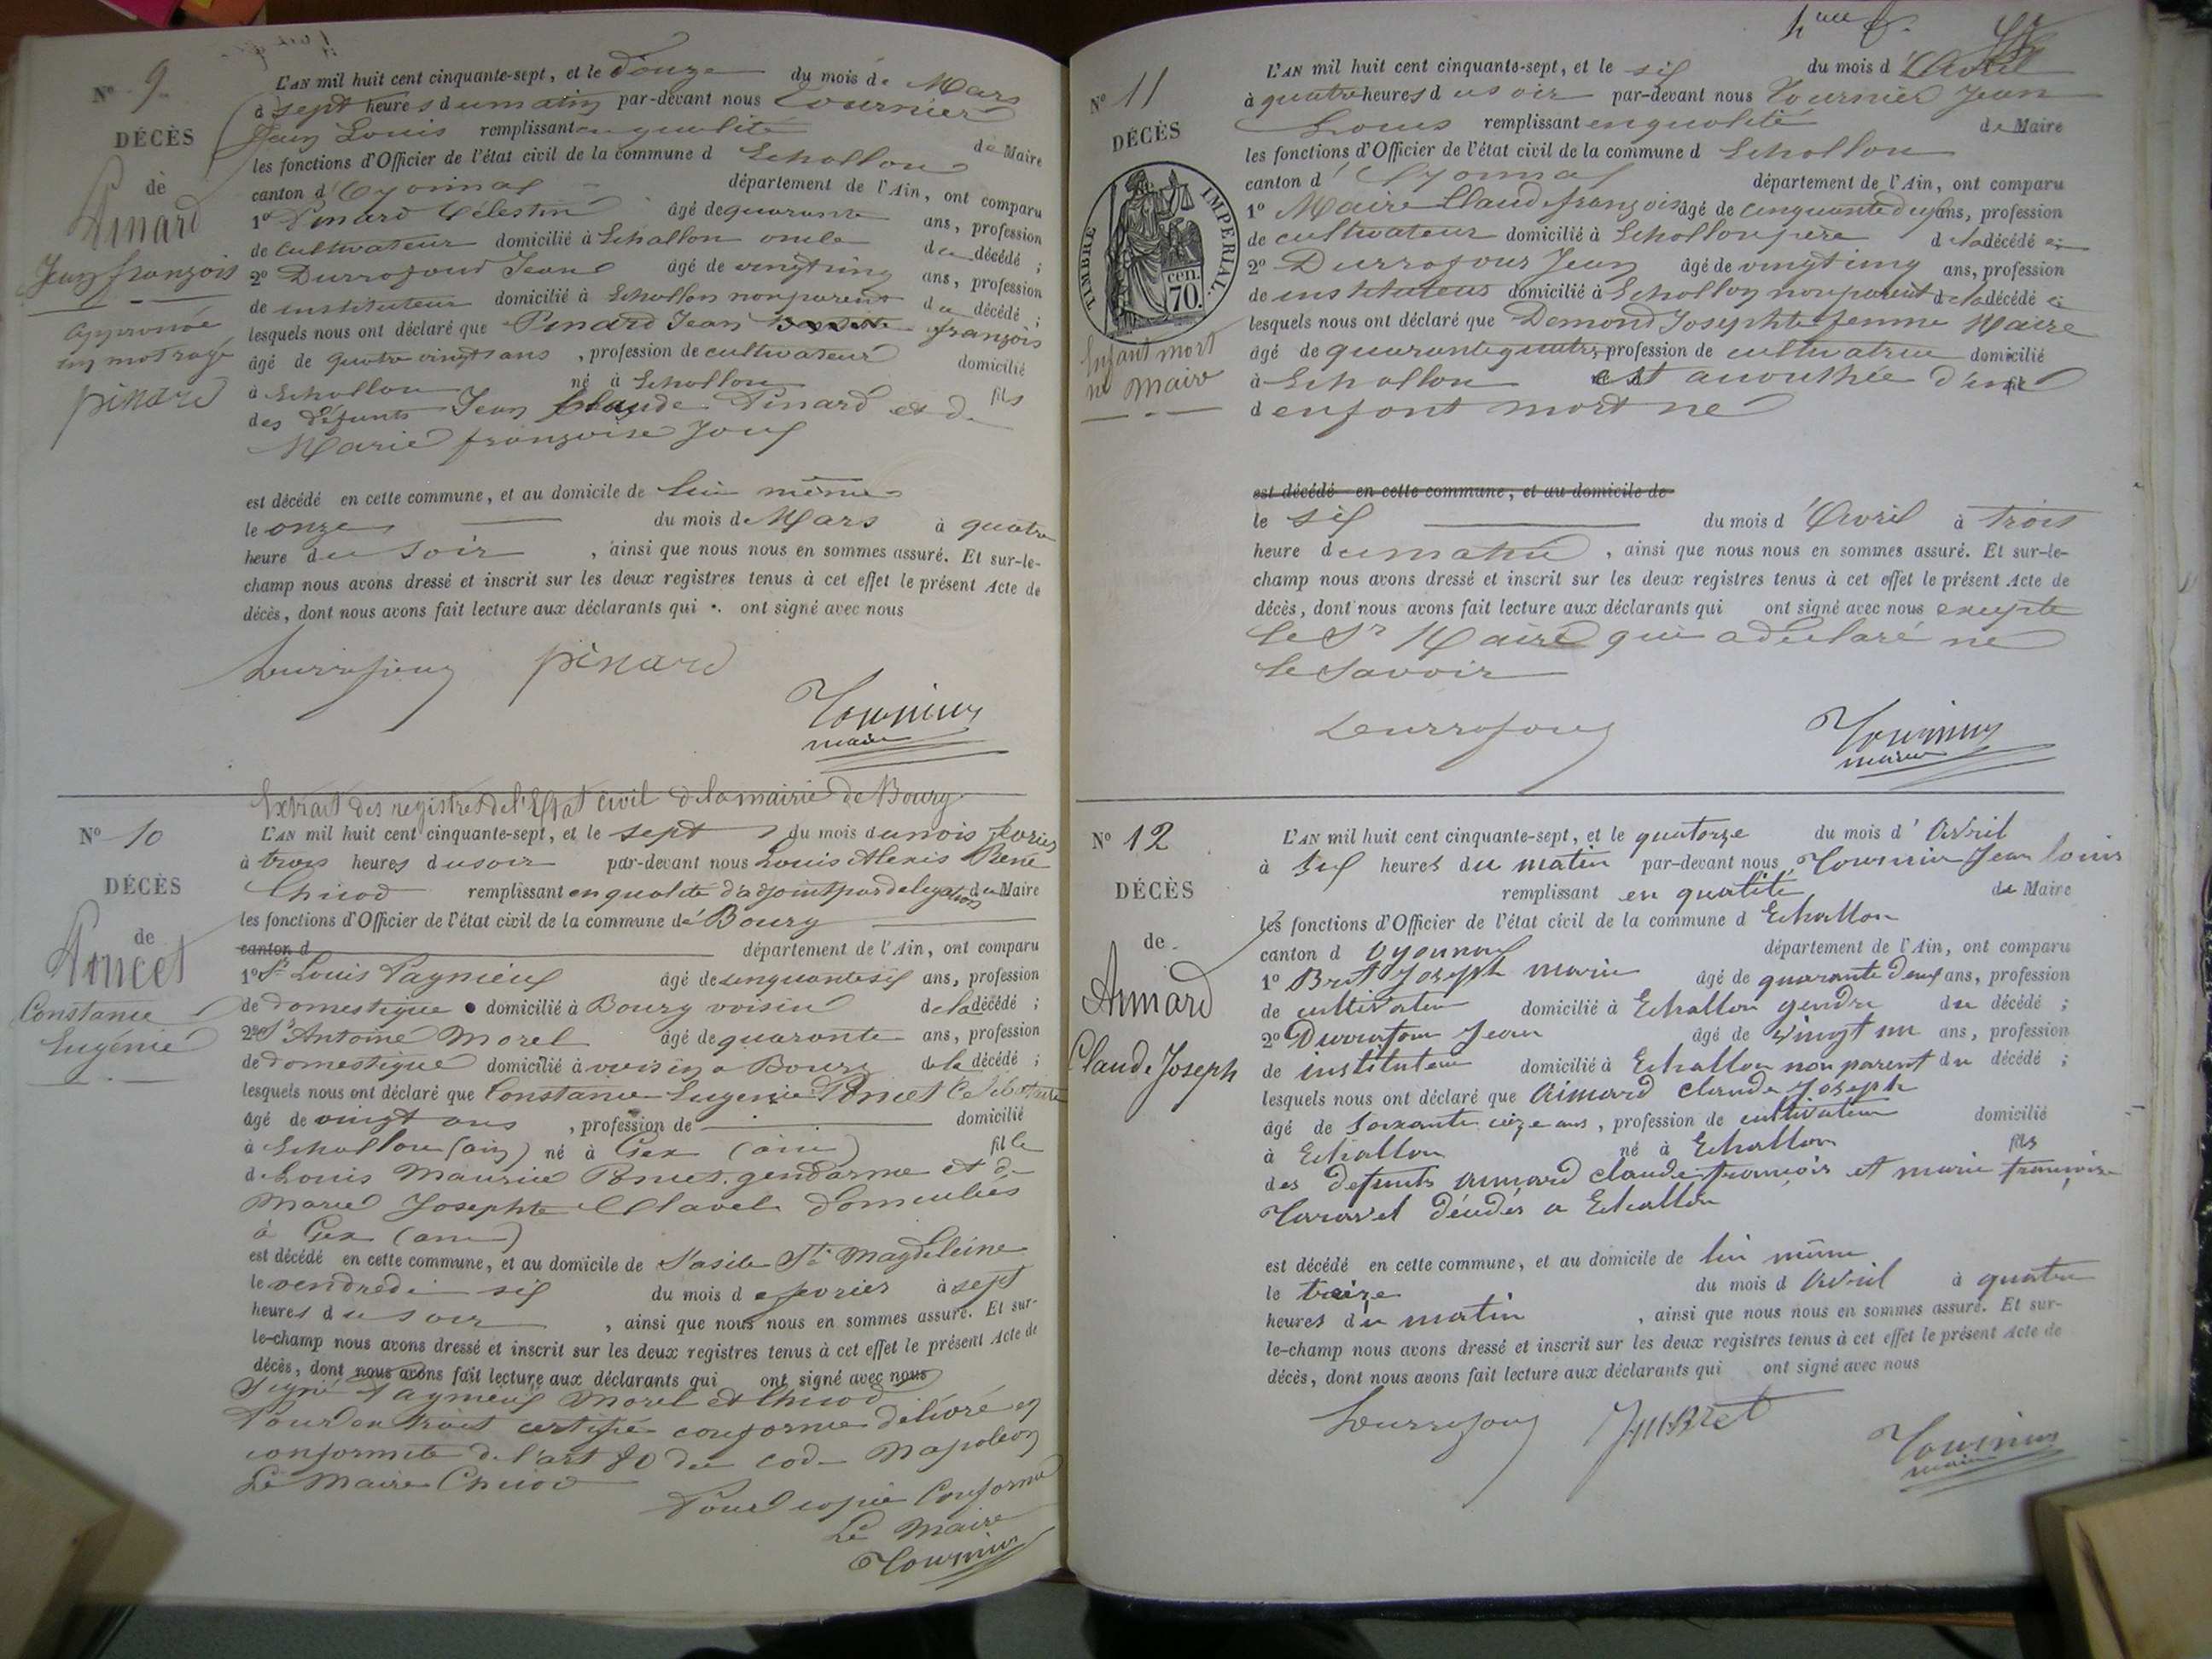 N° 9
DÉCÈS
de
Pinard
Jean françois
approuvé
un mot rayé
pinard
L'AN mil huit cent cinquante-sept, et le Douze du mois de Mars
à sept heures du matin par-devant nous Tournier
Jean Louis remplissant en qualité de Maire
les fonctions d'Officier de l'état civil de la commune d Echallon
canton d'Oyonnax département de l'Ain, ont comparu
1° Pinard Célestin âgé de quarante ans, profession
de cultivateur domicilié à Echallon oncle du décédé ;
2° Durrafour Jean âgé de vingt un ans, profession
de instituteur domicilié à Echallon non parent du décédé ;
lesquels nous ont déclaré que Pinard Jean françois
âgé de quatre vingt ans, profession de cultivateur domicilié
à Echallon né à Echallon fils
des défunts Jean Claude Pinard et de
Marie françoise Joux
est décédé en cette commune, et au domicile de lui même
le onze du mois de Mars à quatre
heure du soir, ainsi que nous nous en sommes assuré. Et sur-le-
champ nous avons dressé et inscrit sur les deux registres tenus à cet effet le présent Acte de
décès, dont nous avons fait lecture aux déclarants qui ont signé avec nous
Durrafour pinard
Tournier
maire
Extrait des registres de l'Etat civil de la mairie de Bourg
N° 10
DÉCÈS
de
Poncet
Constance
Eugénie
L'AN mil huit cent cinquante-sept, et le sept du mois du mois fevrier
à trois heures du soir par-devant nous Louis Alexis René
Chicod remplissant en qualité d'adjoint par delegation du Maire
les fonctions d'Officier de l'état civil de la commune de Bourg
canton d département de l'Ain, ont comparu
1° Sr Louis Pagnieux âgé de cinquante six ans, profession
de domestique domicilié à Bourg voisin de la décédé ;
2° Sr Antoine Morel âgé de quarante ans, profession
de domestique domicilié à voisin a Bourg de la décédé ;
lesquels nous ont déclaré que Constance Eugenie Poncet Celibataire
âgé de vingt ans, profession de domicilié
à Echallon (ain) né à Gex (ain) fille
de Louis Maurice Poncet gendarme et de
Marie Josephte Clavel domiciliés
à Gex (ain)
est décédé en cette commune, et au domicile de l'asile Ste Magdeleine
le vendredi six du mois de fevrier à sept
heures du soir, ainsi que nous nous en sommes assuré. Et sur-
le-champ nous avons dressé et inscrit sur les deux registres tenus à cet effet le présent Acte de
décès, dont nous avons fait lecture aux déclarants qui ont signé avec nous
Signé Pagnieux Morel et Chicod
Pour extrait certifié conforme délivré en
conformite de l'art 80 du code Napoleon
Le Maire Chicod
Pour copie Conforme
Le Maire
Tournier
N° 11
DÉCÈS
TIMBRE IMPÉRIAL.
70 cen.
Enfant mort
né Maire
L'AN mil huit cent cinquante-sept, et le six du mois d'Avril
à quatre heures du soir par-devant nous Tournier Jean
Louis remplissant en qualité de Maire
les fonctions d'Officier de l'état civil de la commune d Echallon
canton d'Oyonnax département de l'Ain, ont comparu
1° Maire Claude françois âgé de cinquante deux ans, profession
de cultivateur domicilié à Echallon père de la décédé
2° Durrafour Jean âgé de vingt un ans, profession
de instituteur domicilié à Echallon non parent de la décédé
lesquels nous ont déclaré que Demond Josephte femme Maire
âgé de quarante quatre, profession de cultivatrice domicilié
à Echallon est accouchée d'un
d enfant mort né
est décédé en cette commune, et au domicile de
le six du mois d'Avril à trois
heure du matin, ainsi que nous nous en sommes assuré. Et sur-le-
champ nous avons dressé et inscrit sur les deux registres tenus à cet effet le présent Acte de
décès, dont nous avons fait lecture aux déclarants qui ont signé avec nous excepte
le Sr Maire qui a déclaré ne
le savoir
Durrafour
Tournier
maire
N° 12
DÉCÈS
de
Aimard
Claude Joseph
L'AN mil huit cent cinquante-sept, et le quatorze du mois d'Avril
à six heures du matin par-devant nous Tournier Jean louis
remplissant en qualité de Maire
les fonctions d'Officier de l'état civil de la commune d Echallon
canton d Oyonnax département de l'Ain, ont comparu
1° Joseph marie âgé de quarante deux ans, profession
de cultivateur domicilié à Echallon gendre du décédé ;
2° Durrafour Jean âgé de vingt un ans, profession
de instituteur domicilié à Echallon non parent du décédé ;
lesquels nous ont déclaré que Aimard claude Joseph
âgé de soixante ans, profession de cultivateur domicilié
à Echallon né à Echallon fils
des defunts aimard claude francois et marie francoise
décédés a Echallon
est décédé en cette commune, et au domicile de lui même
le treize du mois d Avril à quatre
heures du matin, ainsi que nous nous en sommes assuré. Et sur-
le-champ nous avons dressé et inscrit sur les deux registres tenus à cet effet le présent Acte de
décès, dont nous avons fait lecture aux déclarants qui ont signé avec nous
Durrafour
Tournier
maire